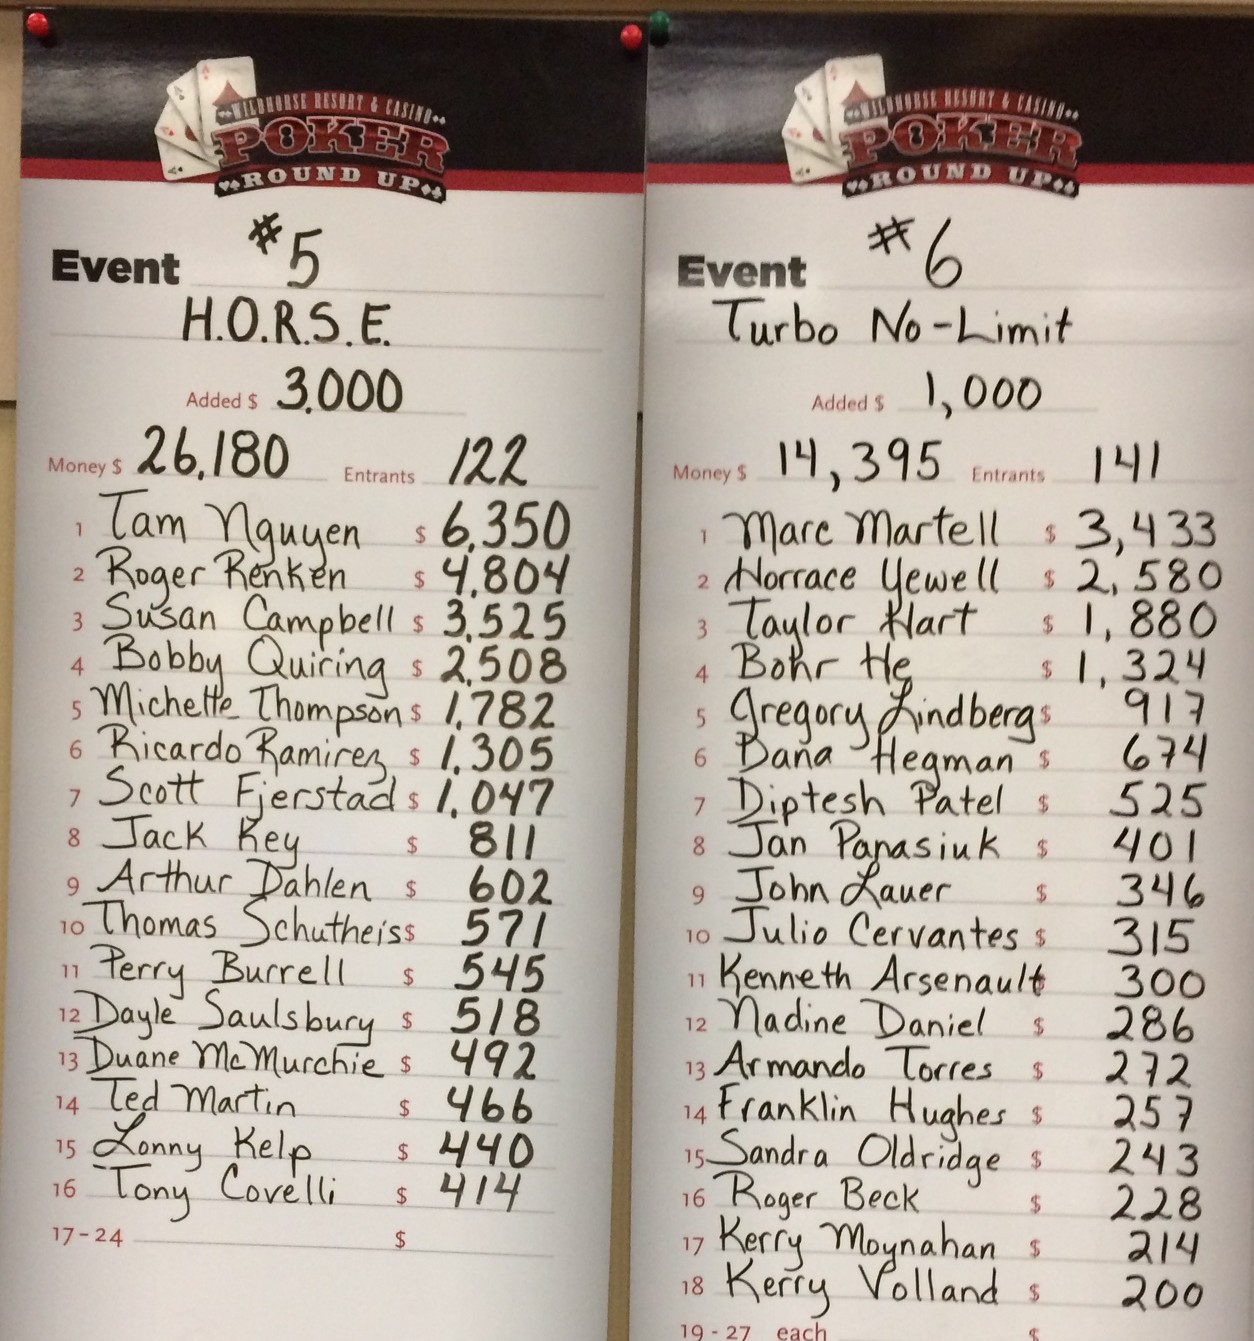 WILDHORSE RESORT & CASINO
POKER
ROUND UP
Event #5
H.O.R.S.E.
Added $ 3,000
Money $ 26,180 Entrants 122
1 Tam Nguyen $ 6,350
2 Roger Renken $ 4,804
3 Susan Campbell $ 3,525
4 Bobby Quiring $ 2,508
5 Michelle Thompson $ 1,782
6 Ricardo Ramirez $ 1,305
7 Scott Fjerstad $ 1,047
8 Jack Key $ 811
9 Arthur Dahlen $ 602
10 Thomas Schutheis $ 571
11 Perry Burrell $ 545
12 Dayle Saulsbury $ 518
13 Duane McMurchie $ 492
14 Ted Martin $ 466
15 Lonny Kelp $ 440
16 Tony Covelli $ 414
17-24 $
WILDHORSE RESORT & CASINO
POKER
ROUND UP
Event #6
Turbo No-Limit
Added $ 1,000
Money $ 14,395 Entrants 141
1 Marc Martell $ 3,433
2 Horrace Yewell $ 2,580
3 Taylor Hart $ 1,880
4 Bohr He $ 1,324
5 Gregory Lindberg $ 917
6 Dana Hegman $ 674
7 Diptesh Patel $ 525
8 Jan Panasiuk $ 401
9 John Lauer $ 346
10 Julio Cervantes $ 315
11 Kenneth Arsenault $ 300
12 Nadine Daniel $ 286
13 Armando Torres $ 272
14 Franklin Hughes $ 257
15 Sandra Oldridge $ 243
16 Roger Beck $ 228
17 Kerry Moynahan $ 214
18 Kerry Volland $ 200
19-27 each $